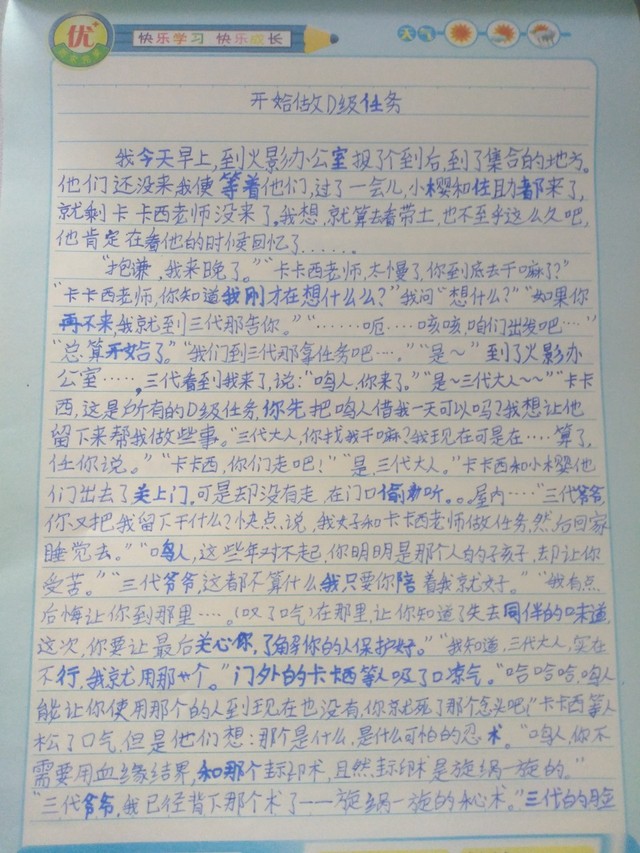 优
快乐学习 快乐成长
天气
开始做D级任务
我今天早上,到火影办公室报了个到后,到了集合的地方。
他们还没来我便等着他们,过了一会儿,小樱和佐助都来了,
就剩卡卡西老师没来了。我想,就算去看带土,也不至乎这么久吧,
他肯定在看他的时候回忆了……
“抱谦,我来晚了。”“卡卡西老师,太慢了,你到底去干嘛了?”
“卡卡西老师,你知道我刚才在想什么么?”我问“想什么?”“如果你
再不来我就到三代那告你。”“……呃……咳咳,咱们出发吧…”
“总算开始了。”“我们到三代那拿任务吧…。”“是~”到了火影办
公室……,三代看到我来了,说:“鸣人,你来了。”“是~三代大人~~”“卡卡
西,这是所有的D级任务,你先把鸣人借我一天可以吗?我想让他
留下来帮我做些事。“三代大人,你找我干嘛?我现在可是在….算了,
任你说。”“卡卡西,你们走吧!”“是,三代大人。”卡卡西和小樱他
们出去了关上门,可是却没有走,在门口偷偷听。。屋内…“三代爷爷,
你又把我留下干什么?快点说,我好和卡卡西老师做任务,然后回家
睡觉去。”“鸣人,这些年对不起,你明明是那个人的孩子,却让你
受苦。”“三代爷爷,这都不算什么,我只要你陪着我就好。”“我有点
后悔让你到那里….。(叹了口气)在那里,让你知道了失去同伴的味道,
这次,你要让最后关心你,了解你的人保护好。”“我知道,三代大人,实在
不行,我就用那个。”门外的卡卡西等人吸了口凉气。“哈哈哈,鸣人
能让你使用那个的人到现在也没有,你就死了那个念头吧(“卡卡西等人
松了口气,但是他们想:那个是什么,是什么可怕的忍术。“鸣人,你不
需要用血缘结界,和那个封印术,且然封印术是旋涡一旋的。”
“三代爷爷,我已经背下那个术了——旋涡一旋的秘术。”三代的脸